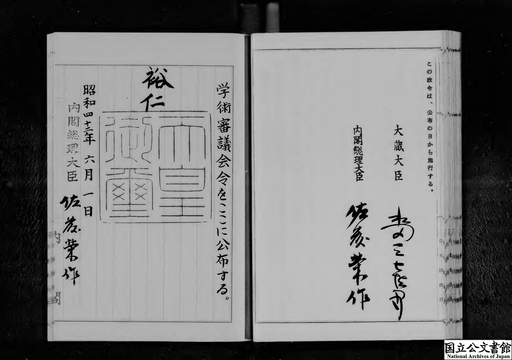 この政令は、公布の日から施行する。
大蔵大臣
水田三喜男
内閣総理大臣
佐藤榮作
学術審議会令をここに公布する。
裕仁
天皇御璽
昭和四十二年六月一日
内閣総理大臣
佐藤榮作
内閣
国立公文書館
National Archives of Japan